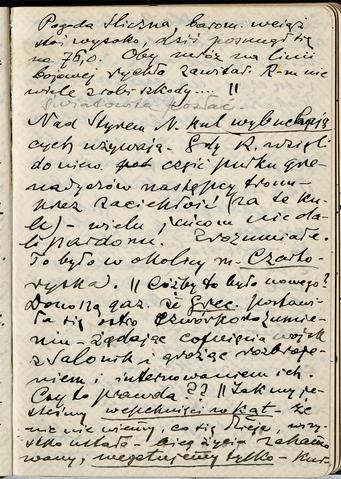 Pogoda śliczna barom. wciąż
stoi wysoko, dziś posunął się
na 76,0. Oby mróz na linii
bojowej rychło zawitał. R-m nie
wiele zrobi szkody.... ||
Nad Styrem N. kul wybuchają
cych używają. Gdy R. wzięli
do niew. część pułku gre-
nadyerów następcy tronu-
przez zaciekłość (za te ku-
le) - wielu jeńcom nie da-
li pardonu. Zrozumiałe.
To było w okolicy m- Czarto-
ryska. || Cóżby to było nowego?
Donoszą gaz. że Grec. postawi-
ła się ostro czwórporozumie-
niu - żądając cofnięcia wojsk
z Salonik i grożąc rozbroje-
niem i internowaniem ich.
Czy to prawda?? || Tak my je-
steśmy wepchnięci na kąt - że
nic nie wiemy, co się dzieje, wszy-
stko ustało - bieg życia zahamo
wany, wegetujemy tylko -